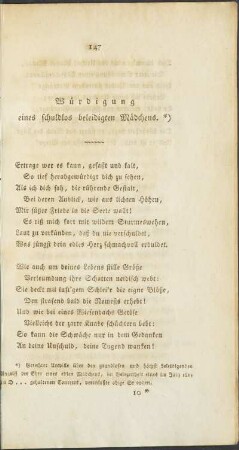 147
Würdigung
eines schuldlos beleidigten Mädchens. *)
Ertrage wer es kann, gefaßt und kalt,
So tief herabgewürdigt dich zu sehen,
Als ich dich sah, die rührende Gestalt,
Bei deren Anblick, wie aus lichten Höhen,
Mir süßer Friede in die Seele wallt!
Es riß mich fort mit wildem Sturmeswehen,
Laut zu verkünden, daß du nie verschuldet,
Was jüngst dein edles Herz schmachvoll erduldet.
Wie auch um deines Lebens stille Größe
Verleumdung ihre Schatten neidisch webt:
Sie deckt mit lust'gem Schlei'r die eigne Blöße,
Den strafend bald die Nemesis erhebt!
Und wie bei eines Riesenbachs Getöse
Vielleicht der zarte Kande schüchtern bebt:
So kann die Schwäche nur in dem Gedanken
An deine Unschuld, deine Tugend wanken!
*) Vernehmt Urtheile über den grundlosen und höchst beleidigenden
Angriff der Ehre eines edlen Mädchens, bei Gelegenheit eines im Jahr
zu D ... gehaltenen Tanzes, veranlaßten obige Stanzen.
10 **